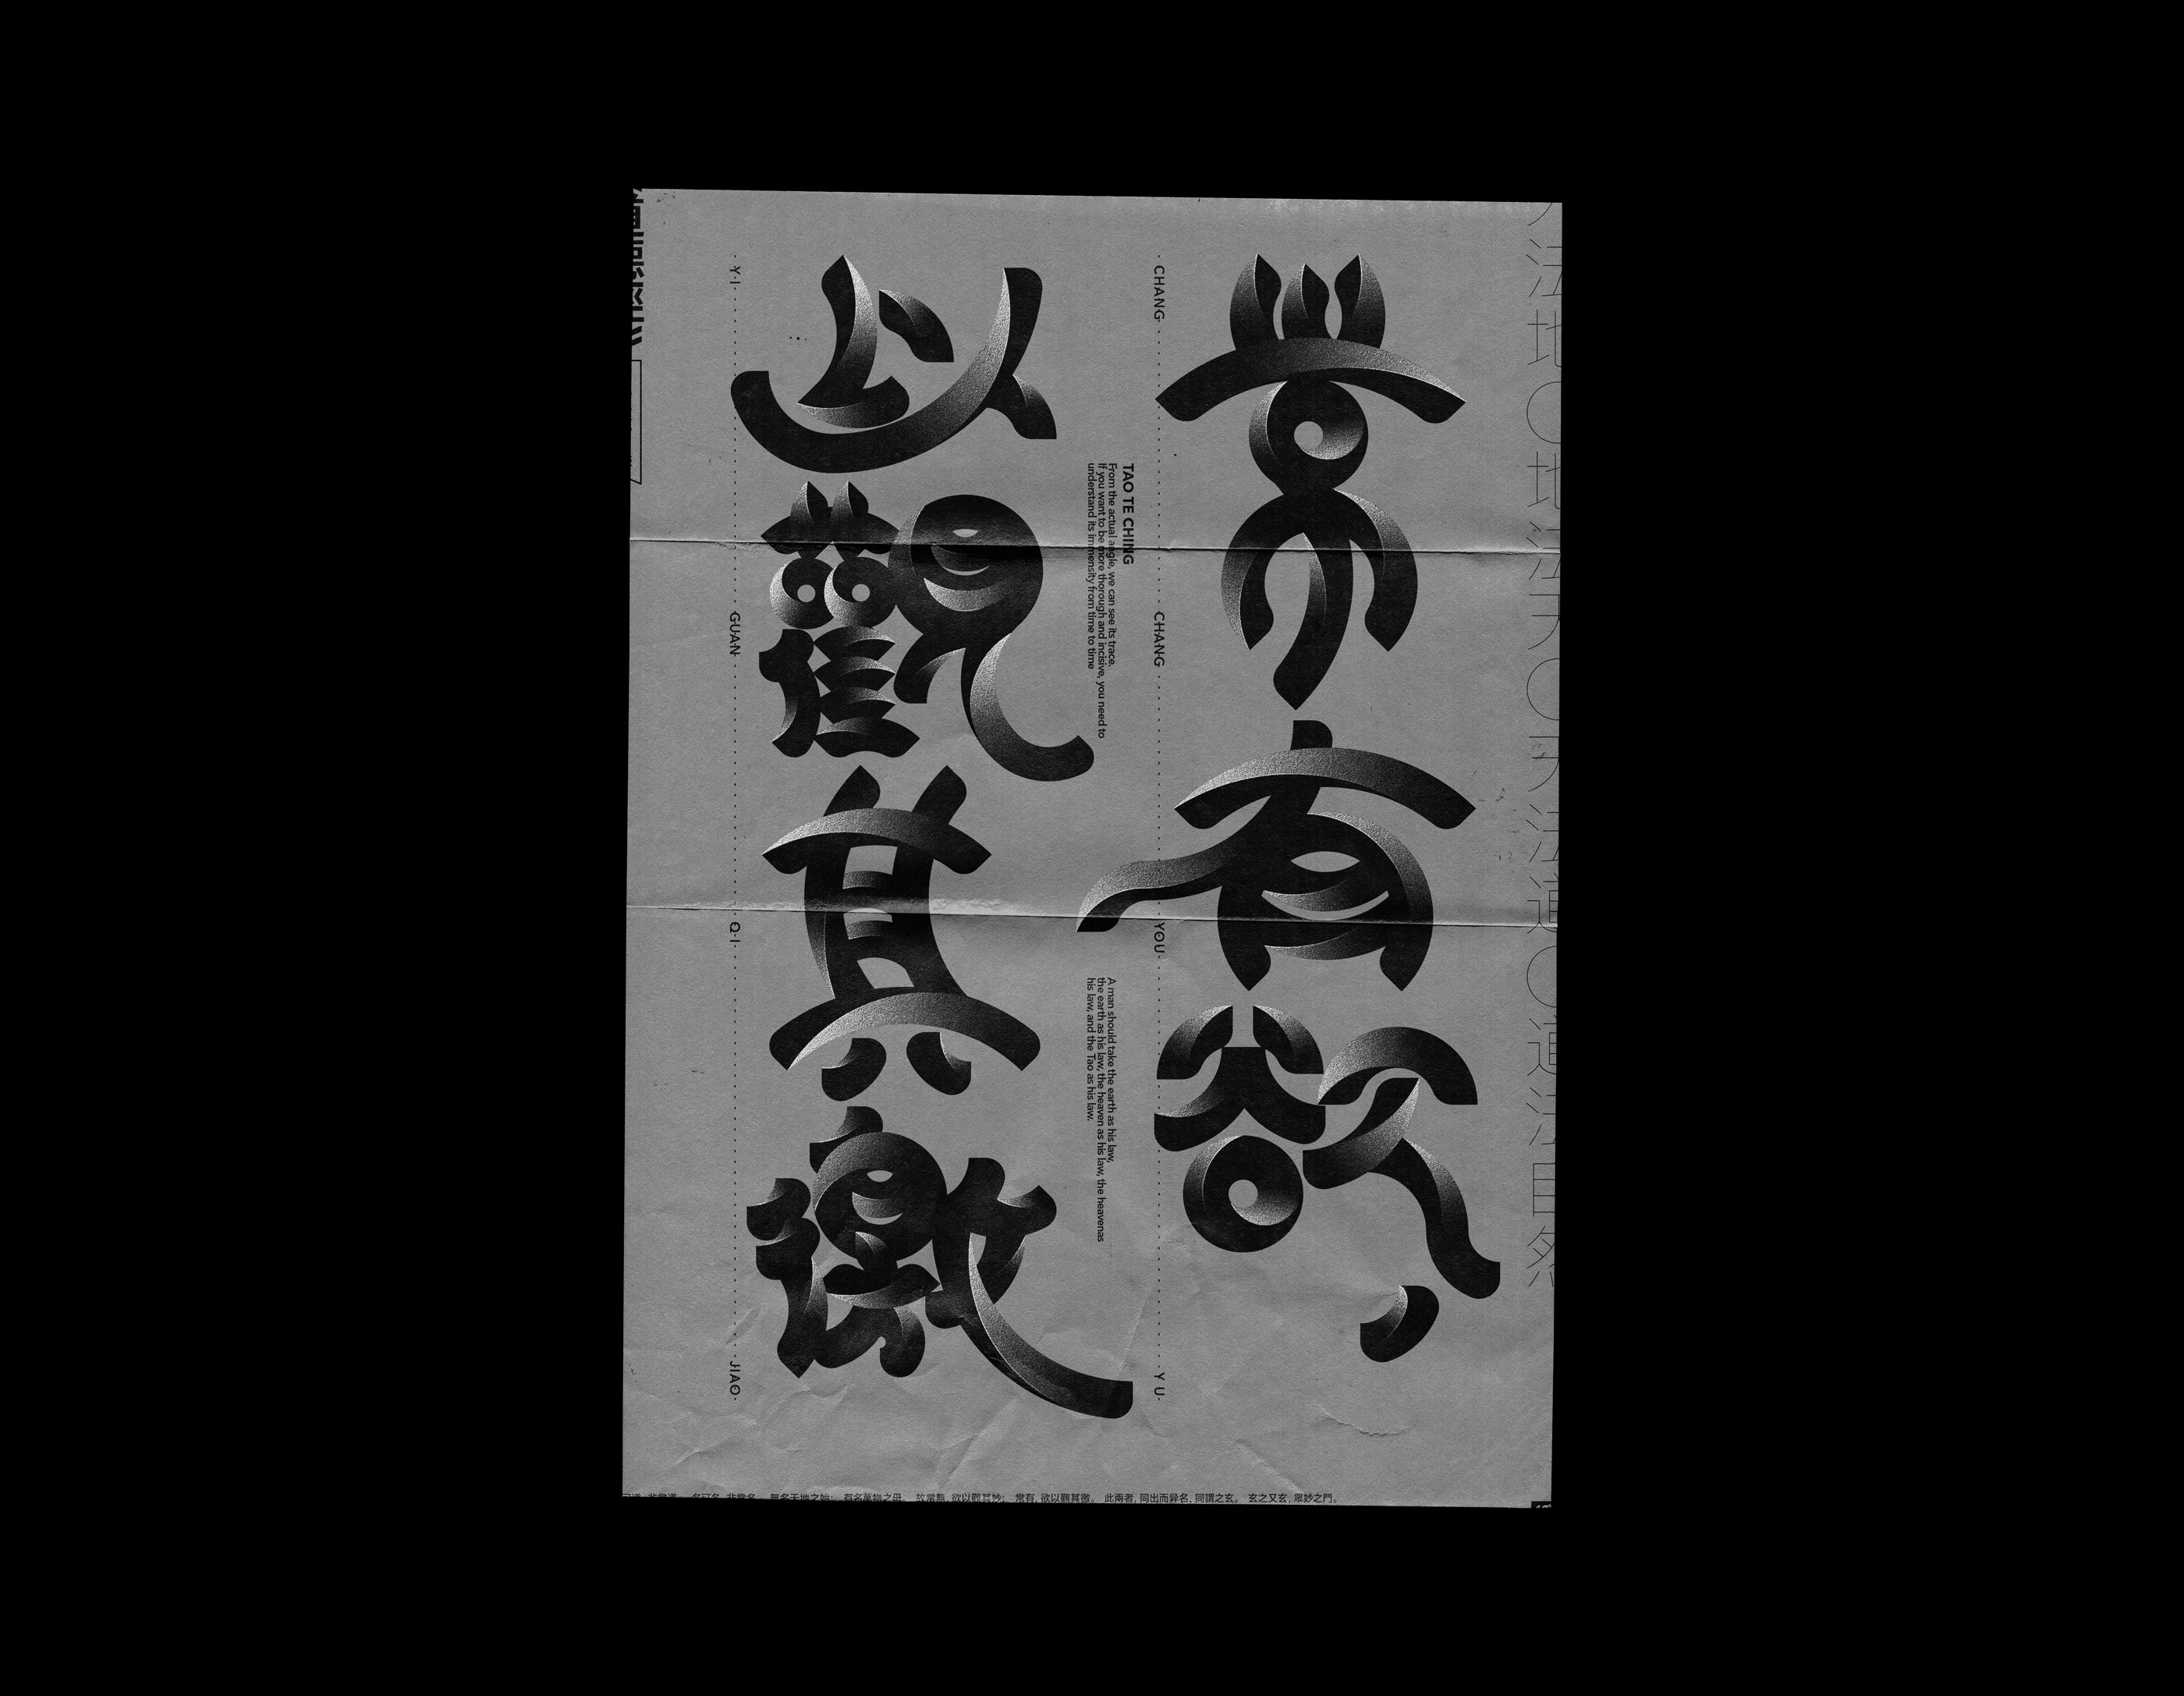 人法地〇地法天〇天法道〇道法自然
常有欲，
CHANG
CHANG
YOU
YU
TAO TE CHING
From the actual angle, we can see its trace.
If you want to be more thorough and incisive, you need to
understand its immensity from time to time
A man should take the earth as his law,
the earth as his law, the heaven as his law, the heavenas
his law, and the Tao as his law.
以觀其徼
YI
GUAN
QI
JIAO
非常道。 名可名, 非常名。 無名天地之始; 有名萬物之母。 故常無, 欲以觀其妙; 常有, 欲以觀其徼。 此兩者, 同出而异名, 同謂之玄。 玄之又玄, 眾妙之門。